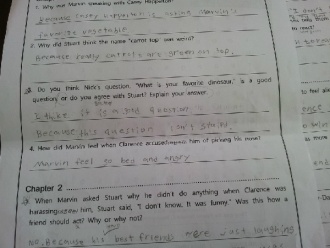 1. Why was Marvin speaking with Casey Happerton?
Because Casey Happerton is asking Marvin's
favorite vegetable.
2. Why did Stuart think the name "carrot top" was weird?
Because really carrots are green on top.
3. Do you think Nick's question, "What is your favorite dinosaur," is a good
question, or do you agree with Stuart? Explain your answer.
I think it is a bad question
Because this question
4. How did Marvin feel when Clarence accused him of picking his nose?
Marvin feel so bad and angry
Chapter 2
When Marvin asked Stuart why he didn't do anything when Clarence was
harassing him, Stuart said, "I don't know. It was funny." Was this how a
friend should act? Why or why not?
no, Because his best friend were just laughing